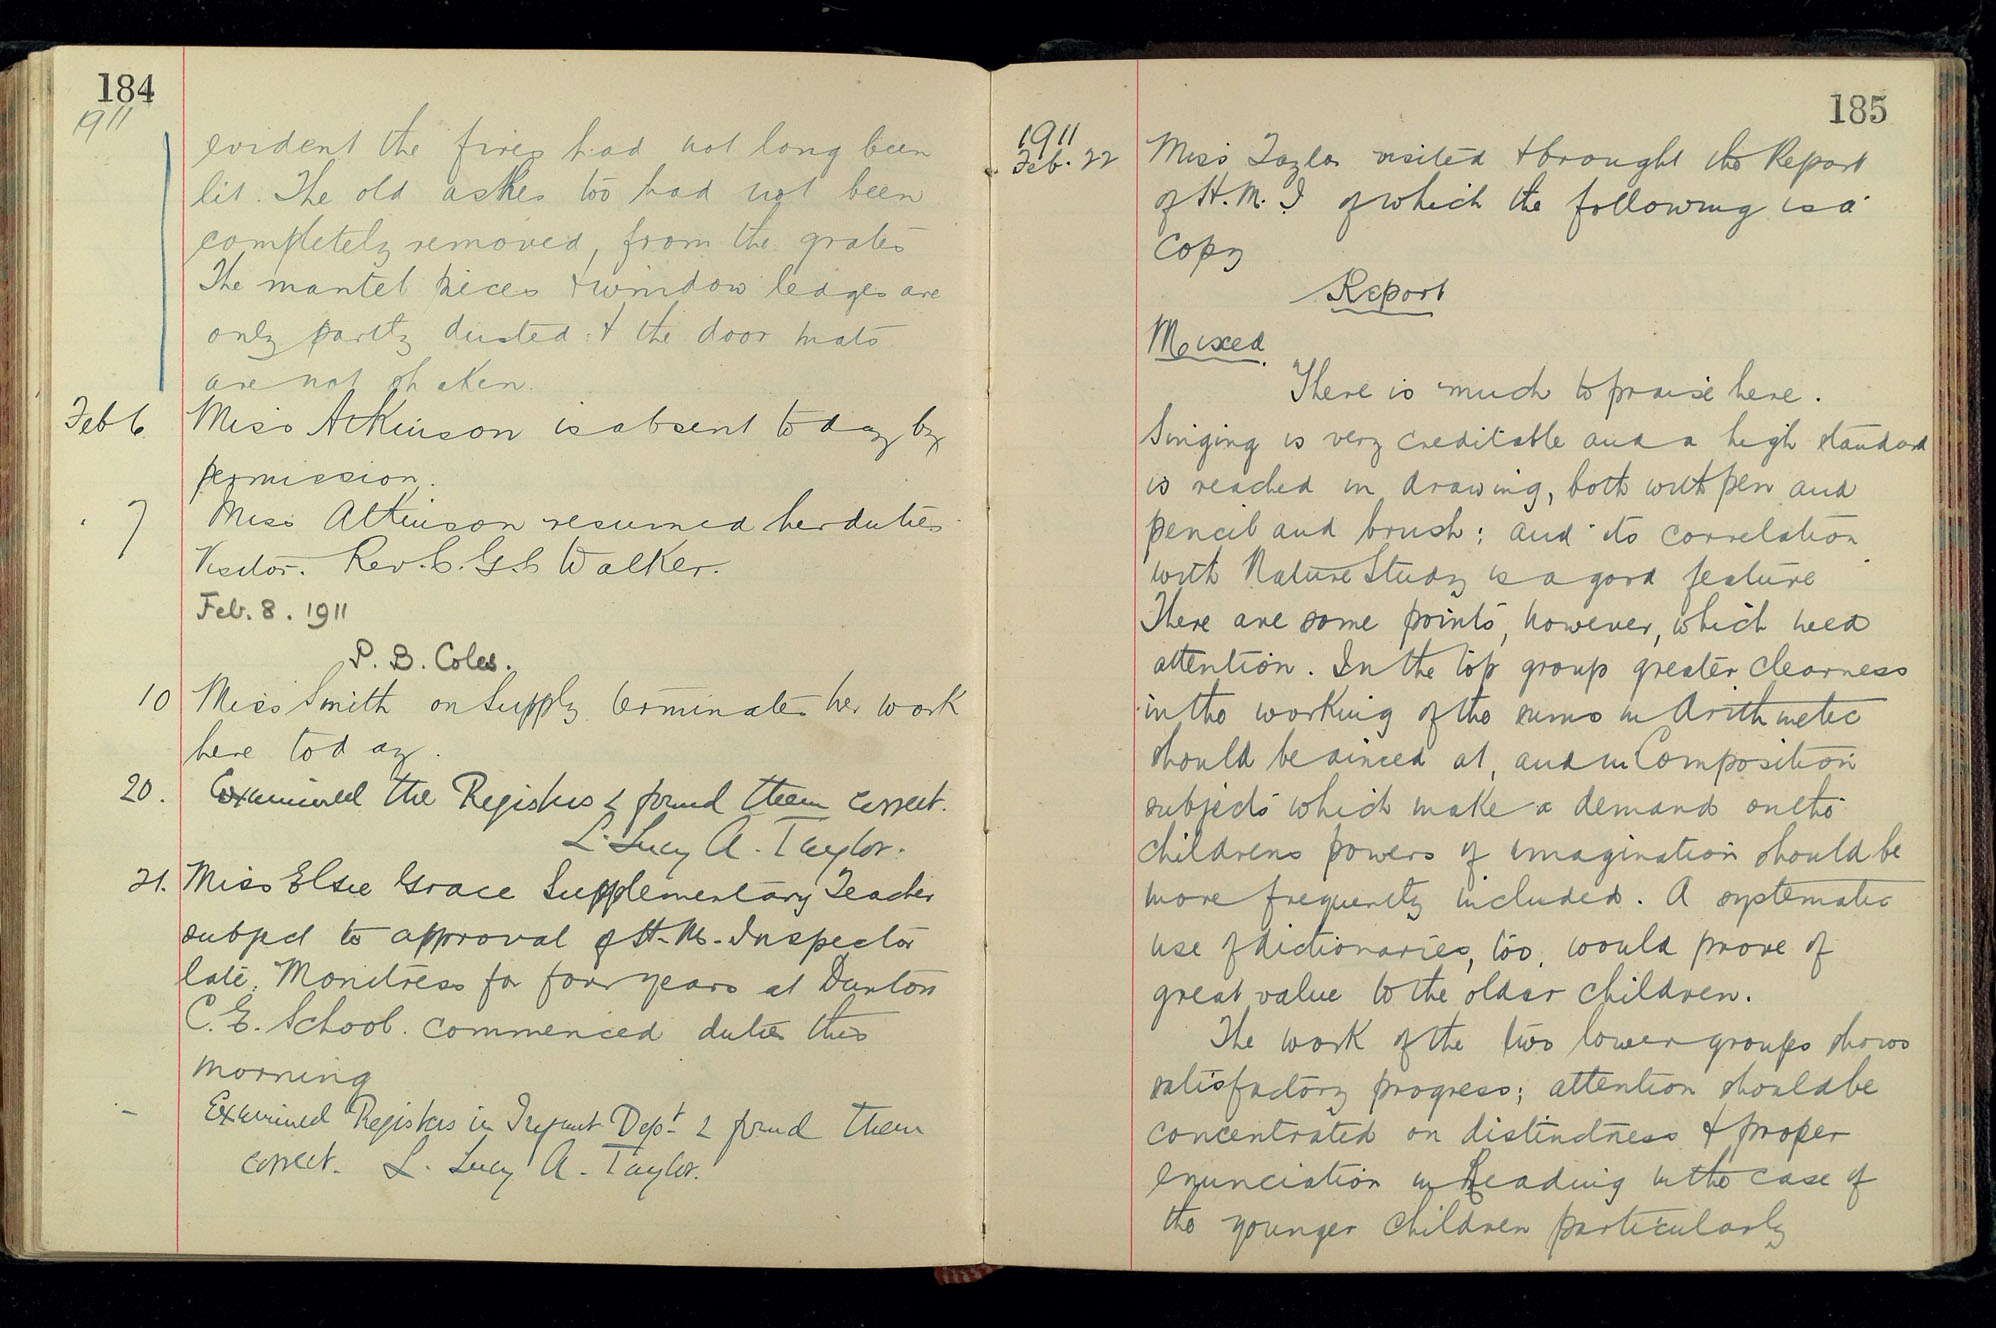 184
1911
evident the fires had not long been
lit. The old ashes too had not been
completely removed, from the grates
The mantel pieces & window ledges are
only partly dusted & the door mats
are not shaken.
Feb 6 Miss Atkinson is absent today by
permission.
" 7 Miss Atkinson resumed her duties
Visitor. Rev. C. G. C Walker.
Feb. 8. 1911
P. B. Coles.
10 Miss Smith on Supply terminates her work
here today.
20. Examined the Registers & found them correct.
L. Lucy A. Taylor.
21. Miss Elsie Grace Supplementary Teacher
subject to approval of H. M. Inspector
late Monitress for four years at Dunton
C. E. School. commenced duties this
morning
Examined Registers in Infant Dept & found them
correct. L. Lucy A. Taylor.
185
1911
Feb. 22 Miss Taylor visited & brought the Report
of H. M. I of which the following is a
copy
Report
Mixed.
There is much to praise here.
Singing is very creditable and a high standard
is reached in drawing, both with pen and
pencil and brush; and its correlation
with Nature Study is a good feature
There are some points, however, which need
attention. In the top group greater clearness
in the working of the sums in Arithmetic
should be aimed at, and in Composition
subjects which make a demand on the
childrens powers of imagination should be
more frequently included. A systematic
use of dictionaries, too, would prove of
great value to the older children.
The work of the two lower groups shows
satisfactory progress; attention should be
concentrated on distinctness & proper
enunciation in Reading in the case of
the younger children particularly